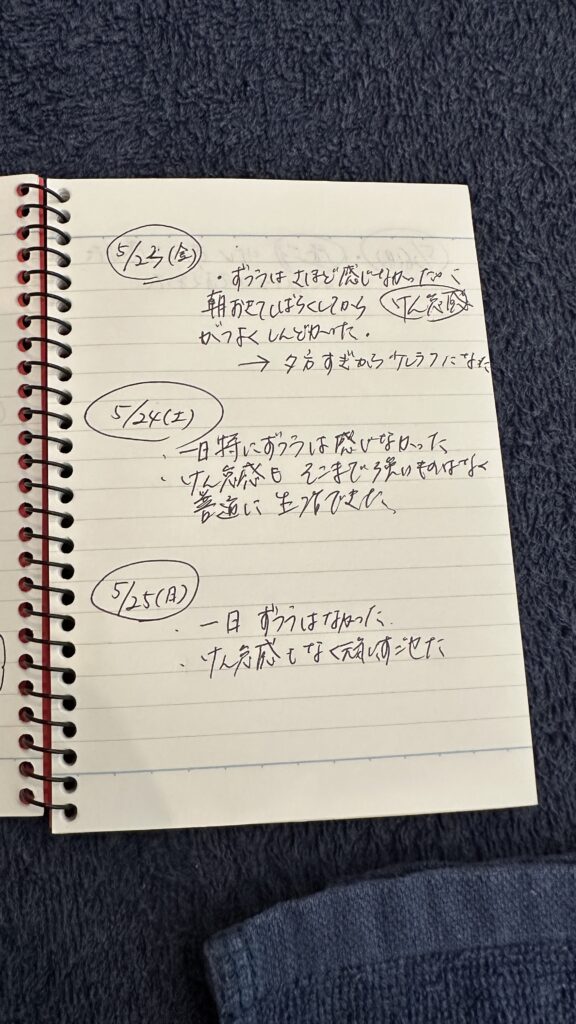 5/23(金)
・ずつうはさほど感じなかったが
朝おきてしばらくしてから けん怠感
がつよくしんどかった.
→ 夕方すぎからケレラフになった
5/24(土)
・一日特にずつうは感じなかった
・けん怠感も そこまで強いものはなく
普通に生活できた.
5/25(日)
・一日 ずつうはなかった.
・けん怠感もなく すごせた